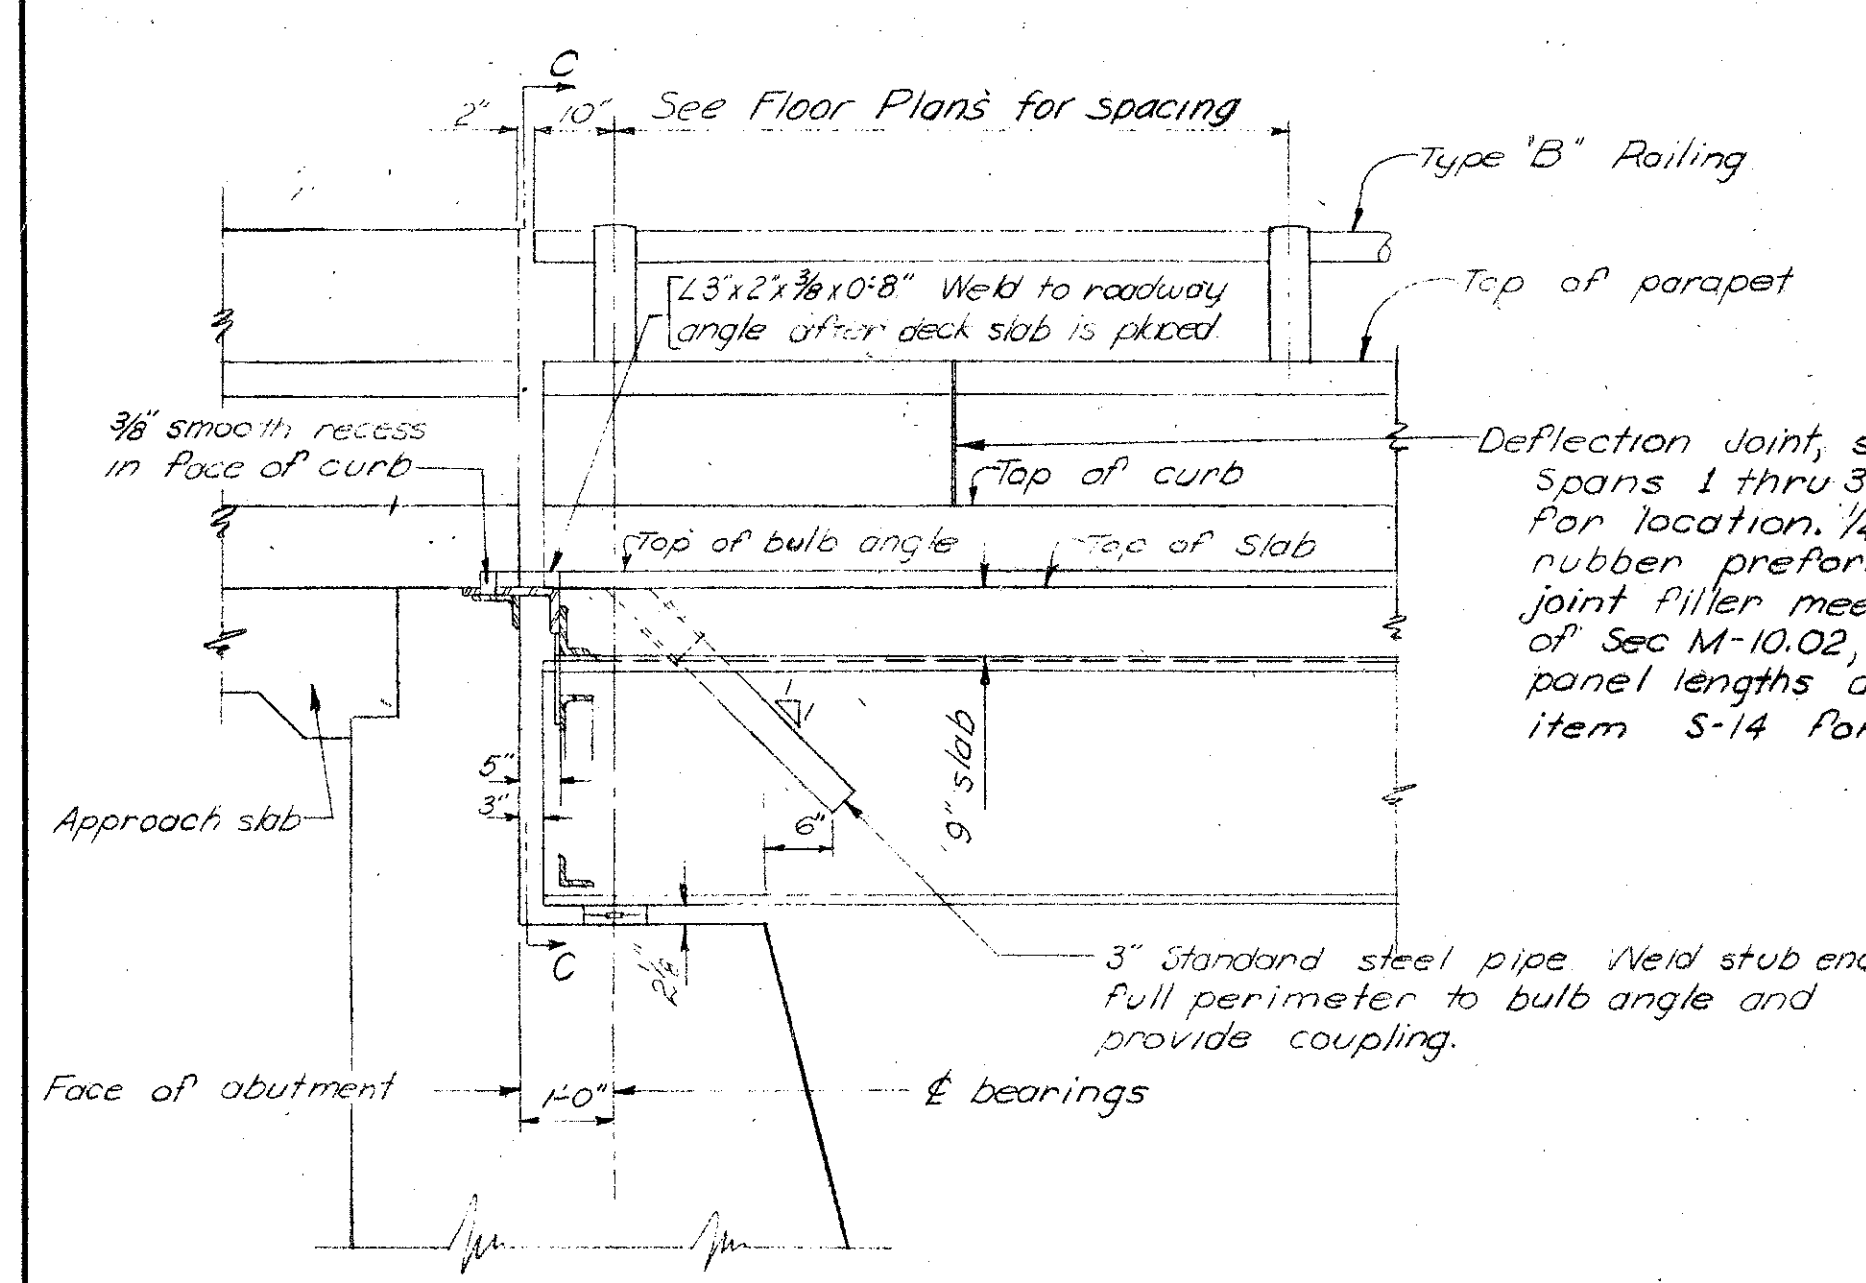 C
2" 10" See Floor Plans for spacing
Type "B" Railing
L3"x2"x3/8x0'-8" Weld to roadway
angle after deck slab is placed.
Top of parapet
3/8" smooth recess
in face of curb
Deflection Joint, s
Spans 1 thru 3
for location. 1/4
rubber prefor
joint filler mee
of Sec M-10.02,
panel lengths
item S-14 for
Top of curb
Top of bulb angle
Top of Slab
1
1
9" slab
5"
3"
6"
Approach slab
2 1/8"
C
3" Standard steel pipe. Weld stub end
full perimeter to bulb angle and
provide coupling.
Face of abutment
1'-0"
℄ bearings